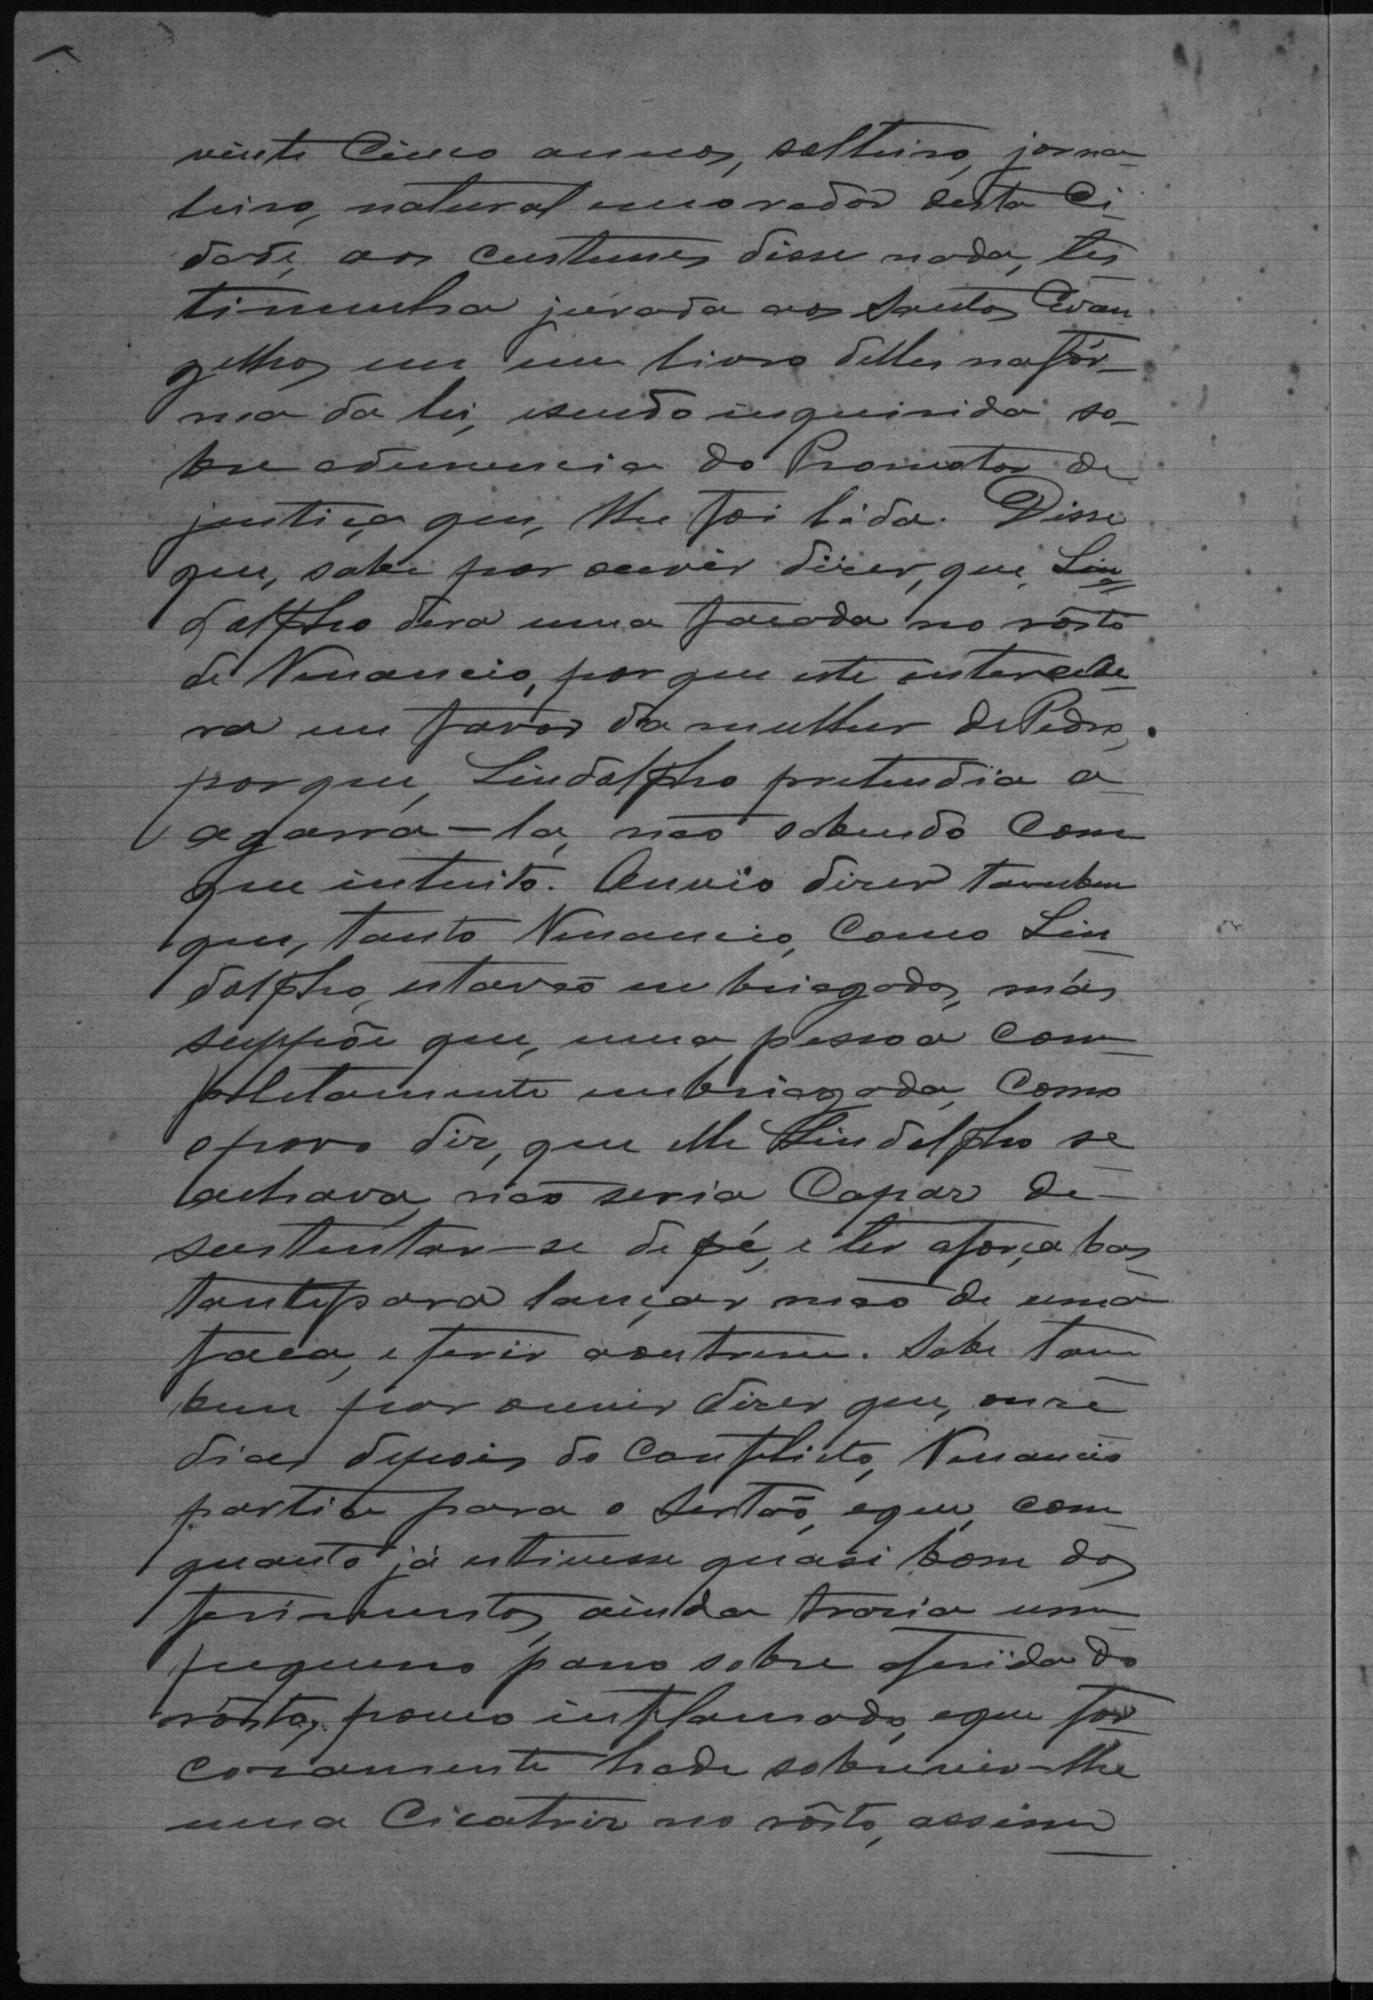 vinte Cinco annos, solteiro, jorna-
leiro, natural emorador desta Ci-
dade, aos custumes disse nada, tes-
timunha jurada aos Santos Evan-
gelhos em um livro delles nafór-
ma da lei, esendo inquirida so-
bre adenuncia do Promotor de
justiça que, lhe foi lida. Disse
que, sabe por ouvir dizer, que, Lin-
dolpho dera uma facada no rôsto
de Venancio, por que este intercede-
ra em favor da mulher de Pedro,
porque, Lindolpho pretendia a-
agarra-la, não sabendo Com
que intuito. Ouvio dizer tambem
que, tanto Venancio, Como Lin-
dolpho, estavão embriagados, más
suppõe que, uma pessoa com-
pletamente embriagada, Como
opovo diz, que elle Lindolpho se
achava, não seria Capaz de-
sustentar-se de pé, e ter aforça bas-
tantepara lançar mão de uma
faca, e ferir aoutrem. Sabe tam-
bem por ouvir dizer que, onze
dias depois do Conflicto, Venancio
partio para o Sertão, eque, com-
quanto já estivesse quasi bom dos
ferimentos, ainda trazia um
pequeno pano sobre aferida do
rôsto, pouco inflamado, eque for-
cosamente hade sobrevir-lhe
uma Cicatriz no rôsto, assim